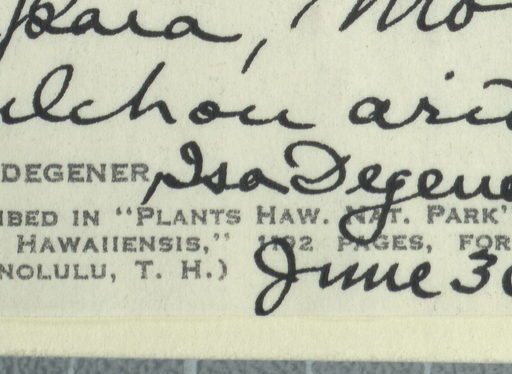 kaia, Mo
ulchou arit
DEGENER, Isa Degene
IBED IN "PLANTS HAW. NAT. PARK"
HAWAIIENSIS," 1192 PAGES, FOR
NOLULU, T. H.)
June 30